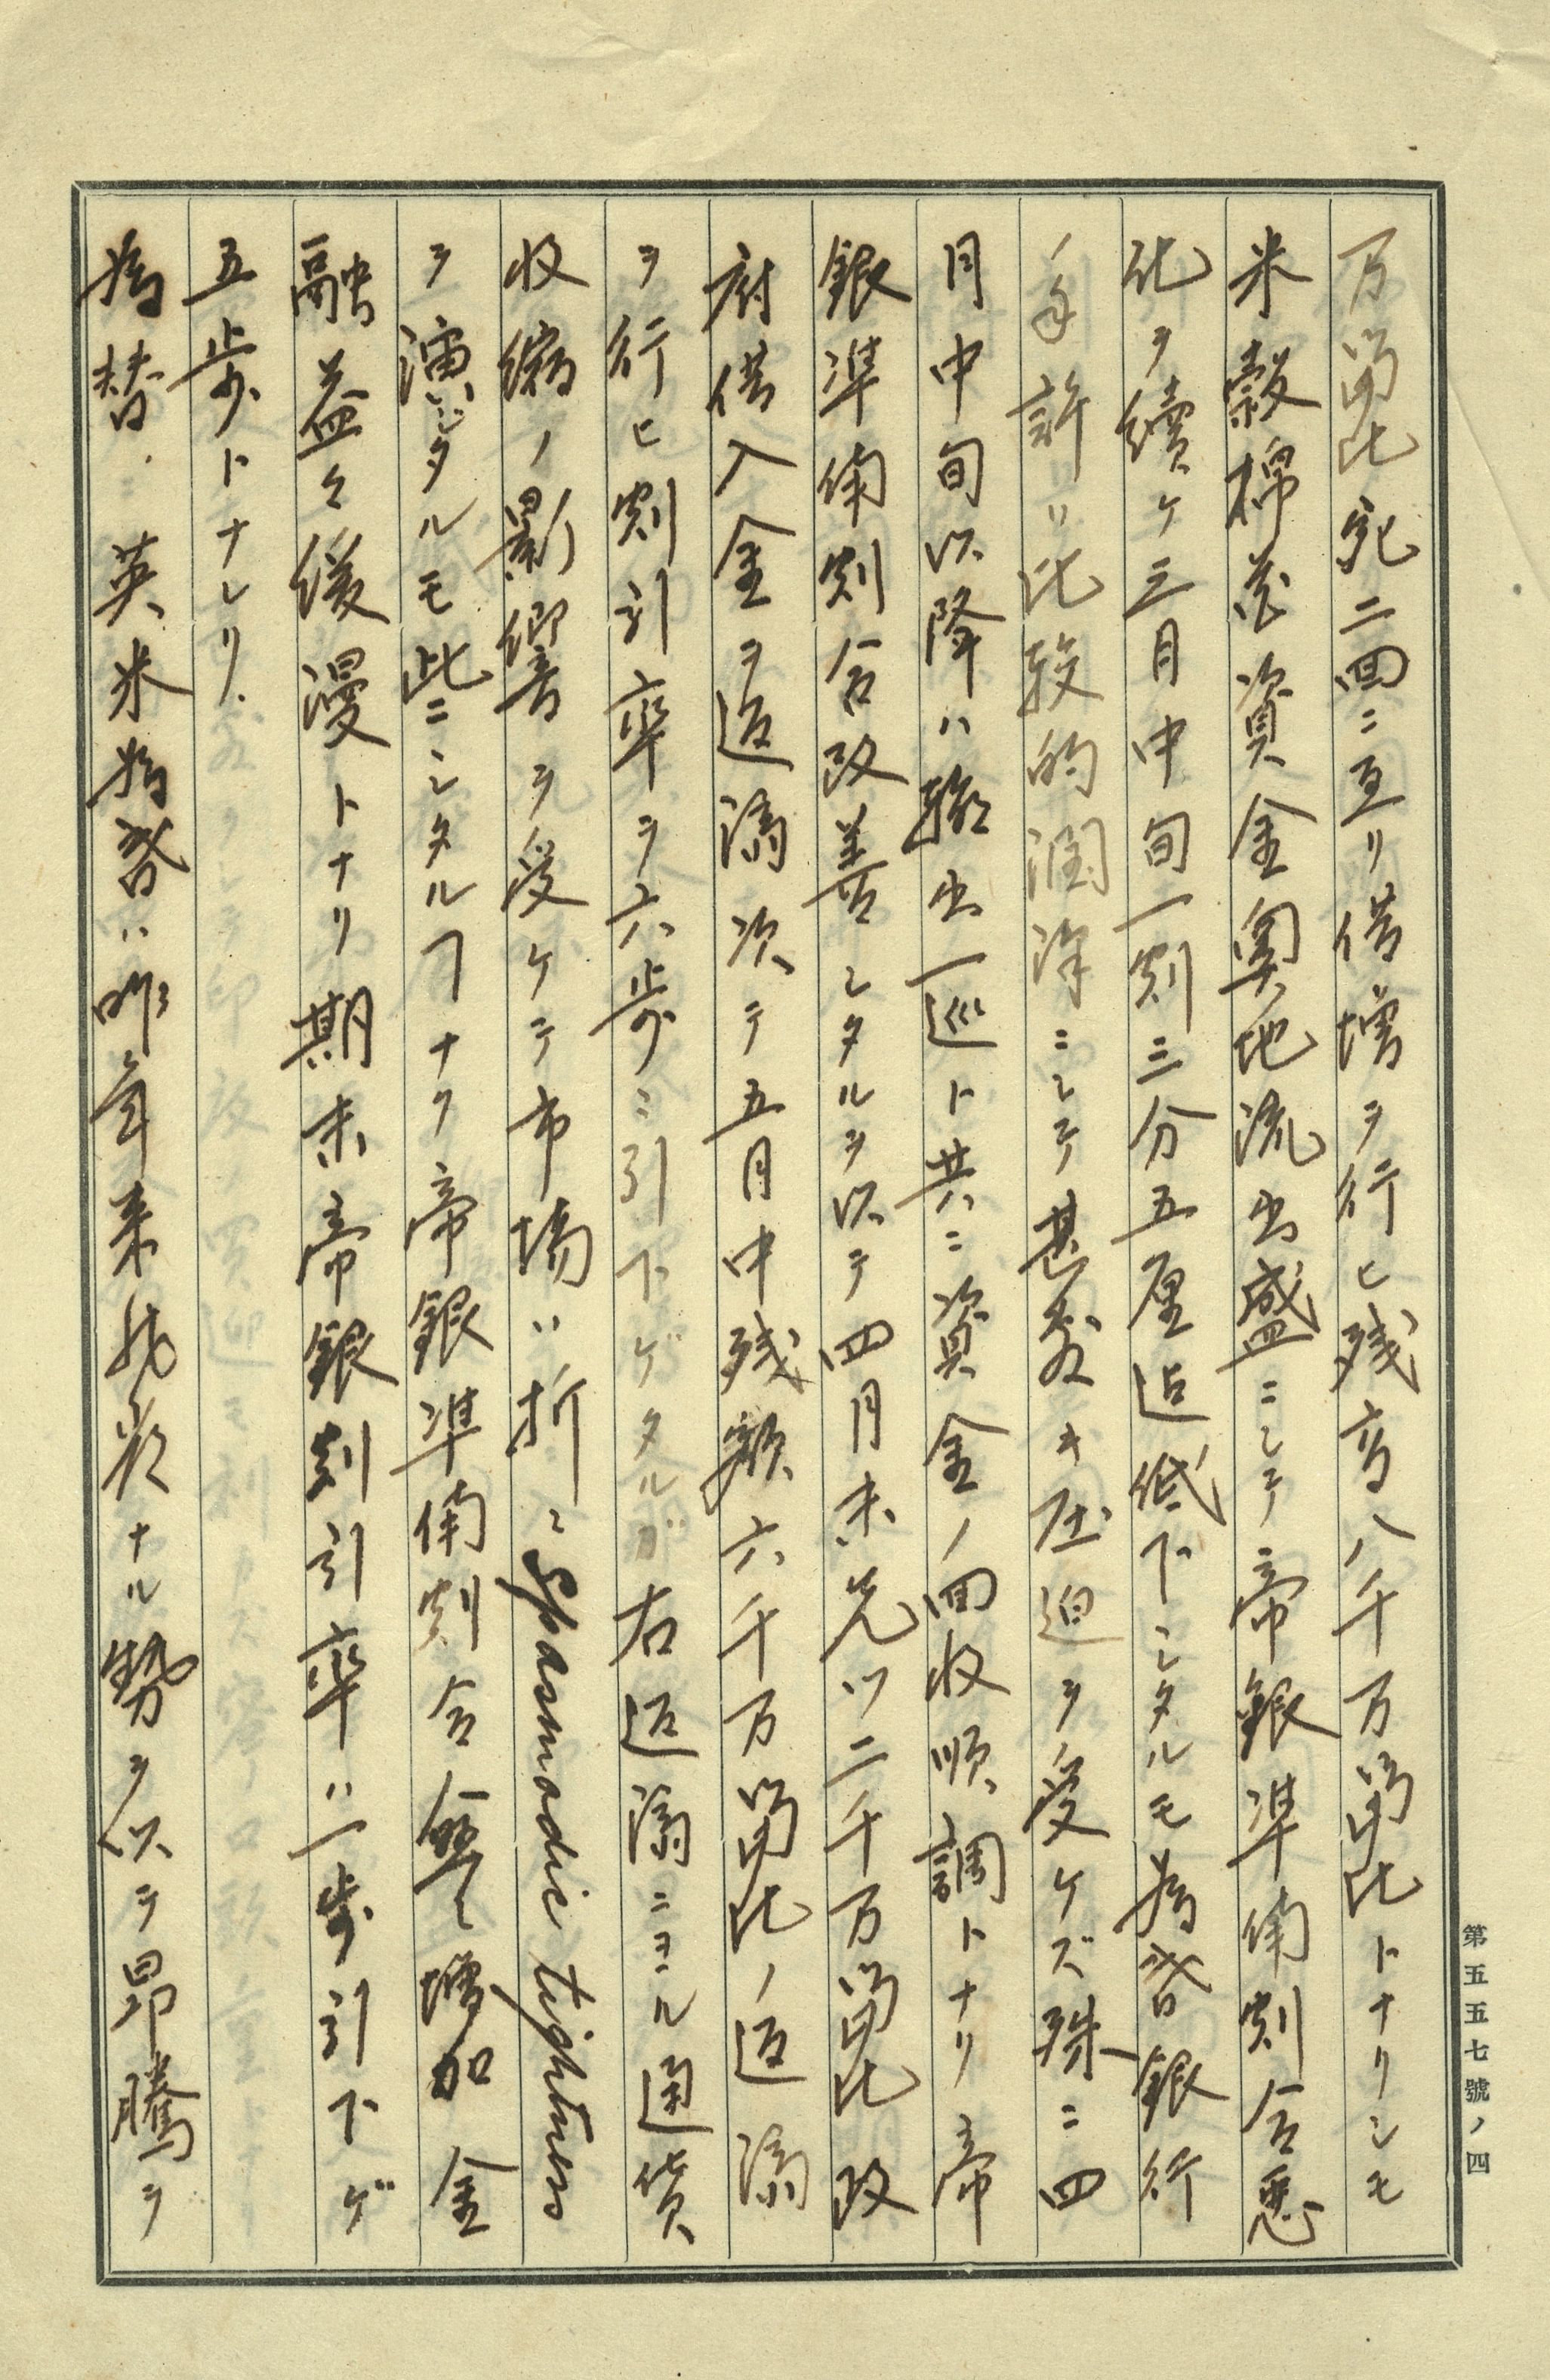 万留比宛二四ニ亘リ借増ヲ行ヒ残高八千万留比トナリシモ
米穀棉花資金奥地流出盛ニシテ帝銀準備割合悪
化ヲ続ケ三月中旬一割三分五厘迠低下シタルモ為替銀行
ノ手許ハ比較的潤沢ニシテ甚敷キ圧迫ヲ受ケズ殊ニ四
月中旬以降ハ輸出一巡ト共ニ資金ノ回收順調トナリ帝
銀準備割合改善シタルヲ以テ四月末先ツ二千万留比政
府借入金ヲ返済次テ五月中残額六千万留比ノ返済
ヲ行ヒ割引率ヲ六歩ニ引下ゲタルガ右返済ニヨル通貨
收縮ノ影響ヲ受ケテ市場ハ折々Spasmodic tightness
ヲ演ジタルモ些ニシタルコナク帝銀準備割合無シ増加金
融益々緩漫トナリ期末帝銀割引率ハ一歩引下ゲ
五歩トナレリ.
為替. 英米為替ハ昨年来ナル勢ヲ以テ昂騰ヲ
第五五七號ノ四